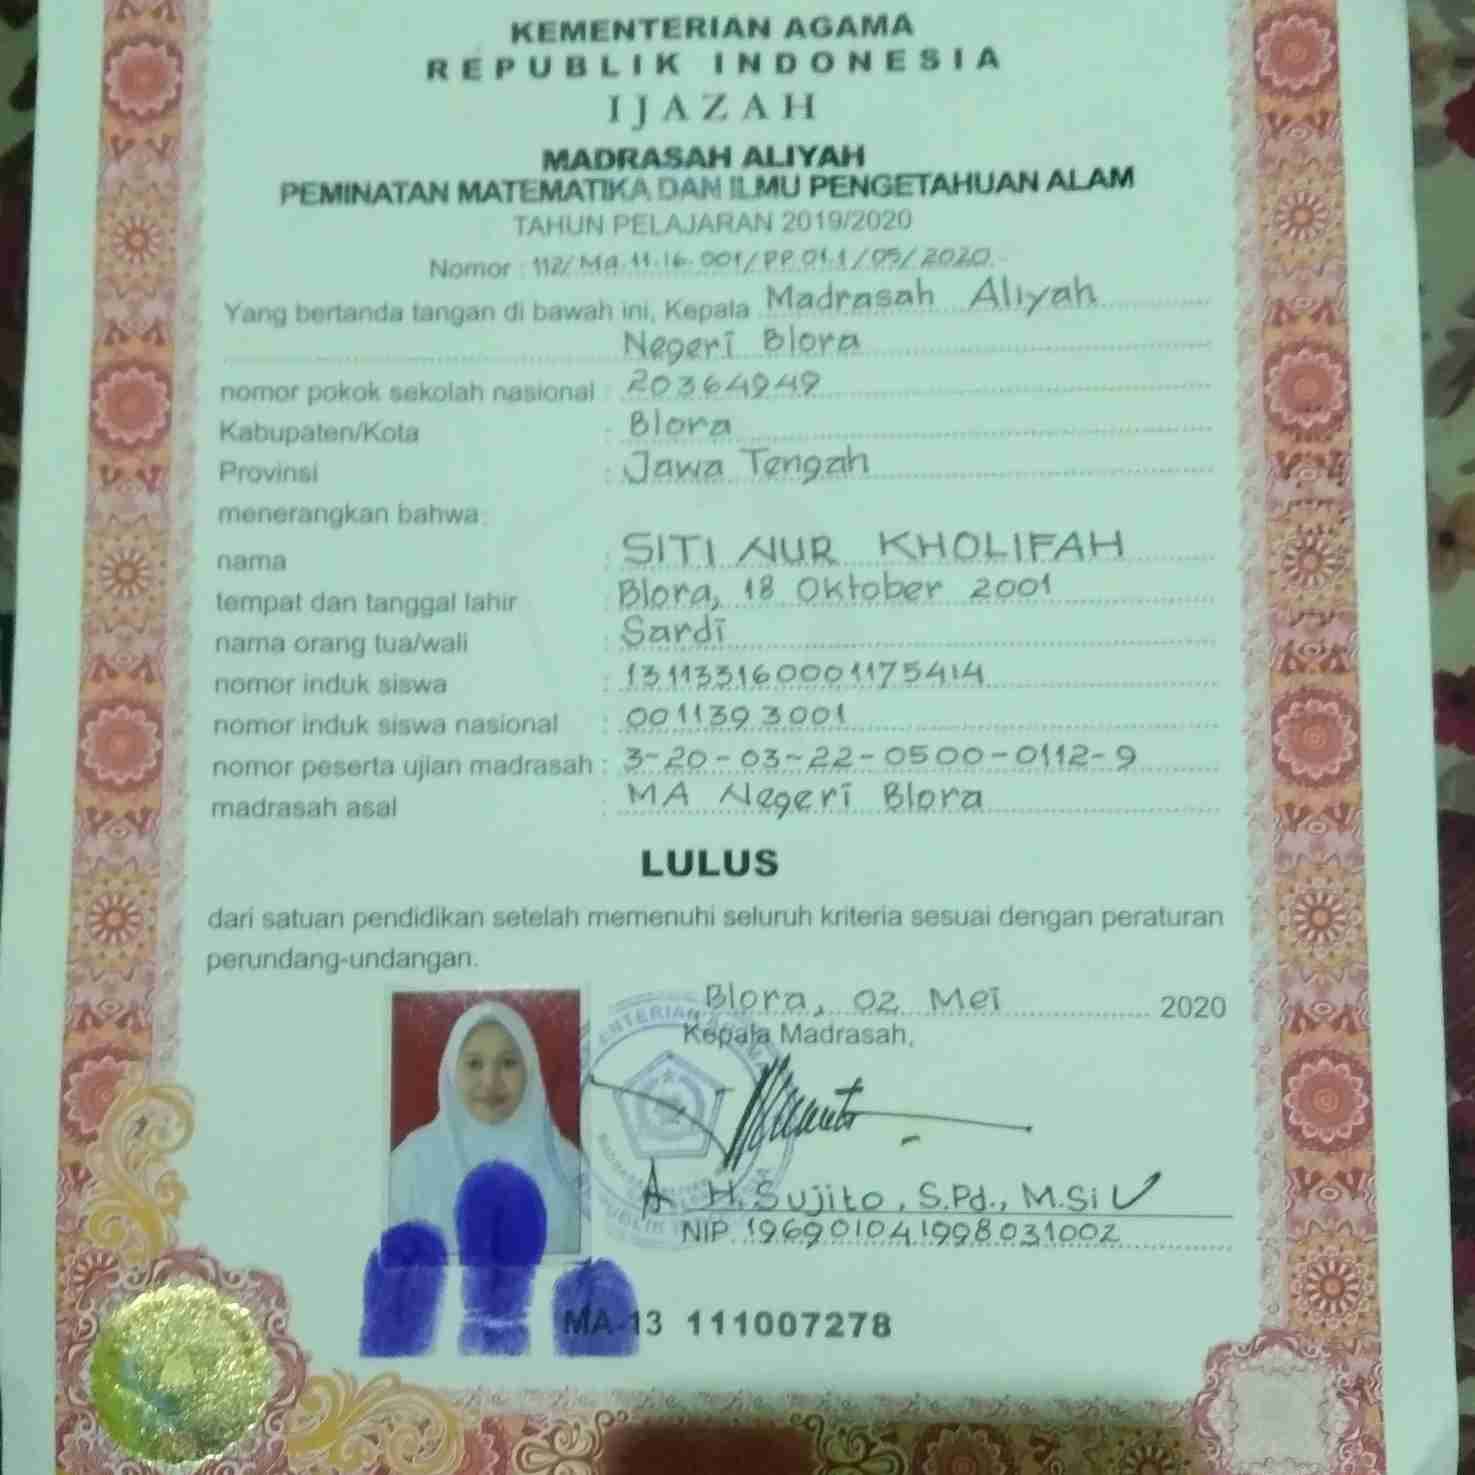 KEMENTERIAN AGAMA
REPUBLIK INDONESIA
IJAZAH
MADRASAH ALIYAH
PEMINATAN MATEMATIKA DAN ILMU PENGETAHUAN ALAM
TAHUN PELAJARAN 2019/2020
Nomor : 112/MA.11.16.001/PP.01.1/05/2020
Yang bertanda tangan di bawah ini, Kepala Madrasah Aliyah
Negeri Blora
nomor pokok sekolah nasional : 20364949
Kabupaten/Kota : Blora
Provinsi : Jawa Tengah
menerangkan bahwa:
nama : SITI NUR KHOLIFAH
tempat dan tanggal lahir : Blora, 18 Oktober 2001
nama orang tua/wali : Sardi
nomor induk siswa : 131133160001175414
nomor induk siswa nasional : 0011393001
nomor peserta ujian madrasah : 3-20-03-22-0500-0112-9
madrasah asal : MA Negeri Blora
LULUS
dari satuan pendidikan setelah memenuhi seluruh kriteria sesuai dengan peraturan
perundang-undangan.
Blora, 02 Mei 2020
Kepala Madrasah,
H. Sujito, S.Pd., M.Si
NIP 196901041998031002
MA-13 111007278